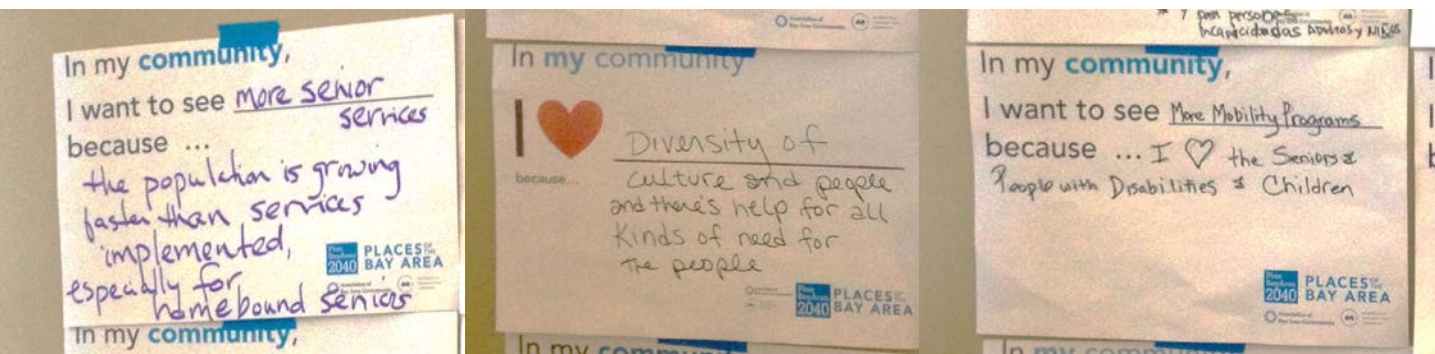 In my community,
I want to see More senior
services
because ...
the population is growing
faster than services
implemented,
especially for
homebound seniors
Plan
BayArea
2040
PLACES OF THE
BAY AREA
Association of
Bay Area Governments
In my community,
Association of
Bay Area Governments
In my community
I ❤ Diversity of
because...
culture and people
and there's help for all
kinds of need for
the people
Plan
BayArea
2040
PLACES OF THE
BAY AREA
In my community
* y para personas
Incapacidadas Adultos y Niños
In my community,
I want to see More Mobility Programs
because ... I ♡ the Seniors &
People with Disabilities & Children
Plan
BayArea
2040
PLACES OF THE
BAY AREA
Association of
Bay Area Governments
In my community